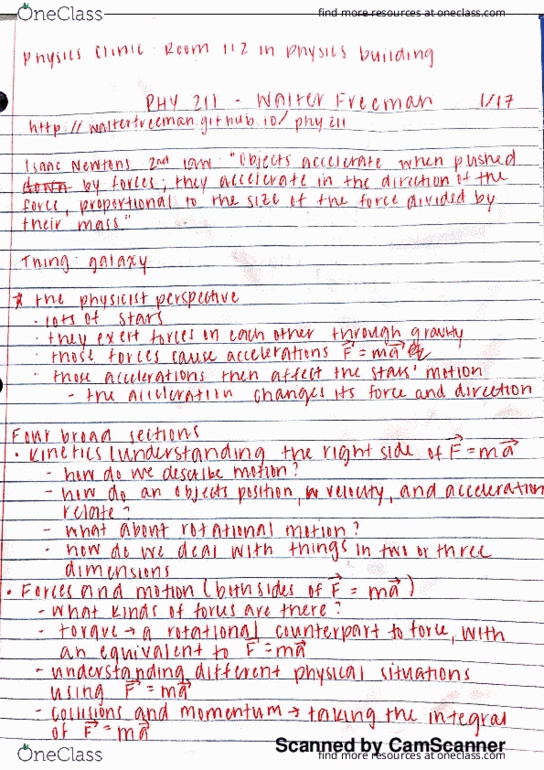 OneClass
find more resources at oneclass.com
Physics Clinic: Room 112 in physics building
PHY 211 - Walter Freeman 1/17
http://walterfreeman.github.io/phy211
Isaac Newtons 2nd law: "Objects accelerate when pushed
down by forces; they accelerate in the direction of the
force, proportional to the size of the force divided by
their mass"
Thing: galaxy
* the physicist perspective
· lots of stars
· they exert forces on each other through gravity
· those forces cause accelerations F = ma
· those accelerations then affect the stars' motion
- the acceleration changes its force and direction
Four broad sections
· Kinetics (understanding the right side of F = ma
- how do we describe motion?
- how do an objects position, velocity, and acceleration
relate?
- what about rotational motion?
- how do we deal with things in two or three
dimensions
· Forces and motion (both sides of F = ma)
- what kinds of forces are there?
- torque → a rotational counterpart to force, with
an equivalent to F = ma
- understanding different physical situations
using F = ma
- collisions and momentum → taking the integral
of F = ma
Scanned by CamScanner
OneClass
find more resources at oneclass.com